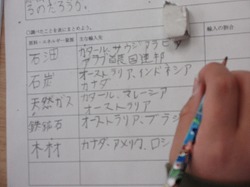 調べたことを表にまとめよう。
資料・エネルギー資源 主な輸入先 輸入の割合
石油 カタール、サウジアラビア
アラブ首長国連邦
石炭 オーストラリア、インドネシア
カナダ
天然ガス カタール、マレーシア
オーストラリア
鉄鉱石 オーストラリア、ブラジ
木材 カナダ、アメリカ、ロシ